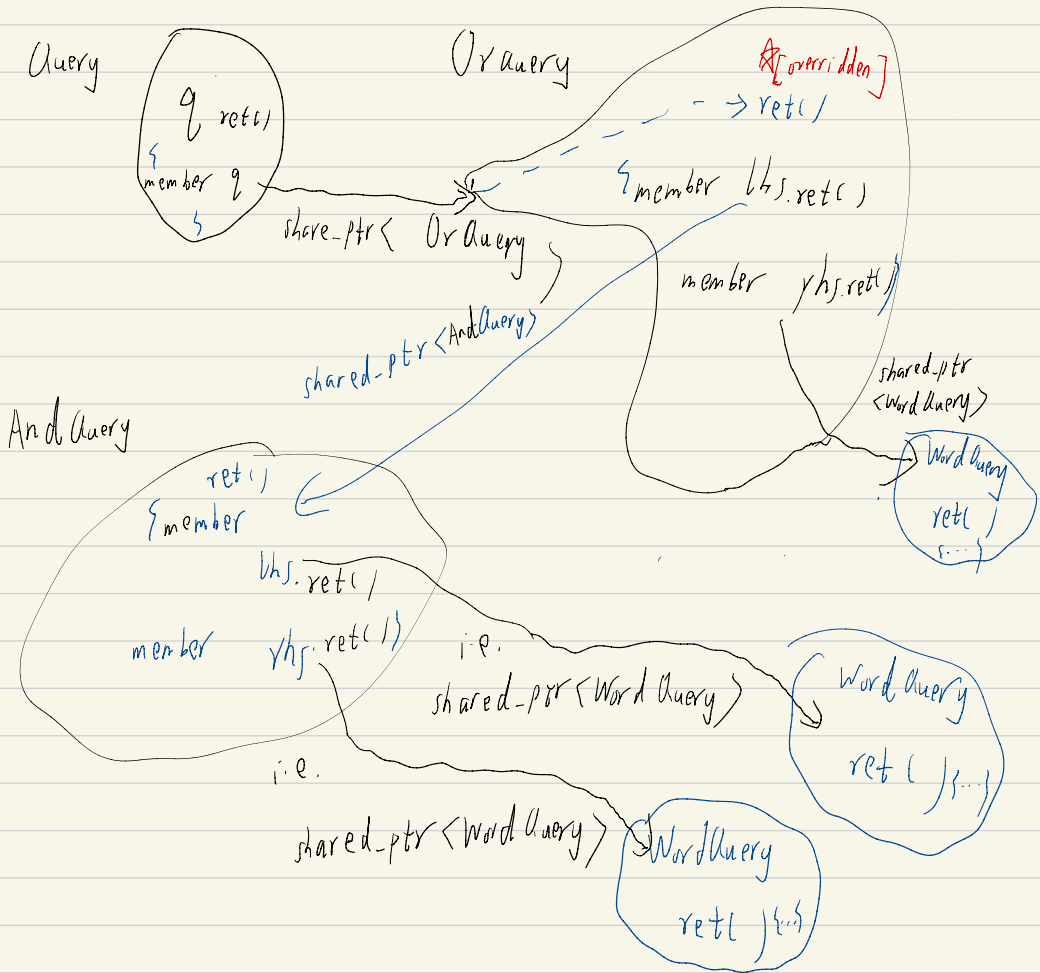 Query
OrQuery
[overridden]
q ret()
→ ret()
{
member q
{member lhs.ret()
}
share_ptr< OrQuery
>
member rhs.ret()}
shared_ptr<AndQuery>
shared_ptr
<WordQuery>
AndQuery
WordQuery
ret()
{...}
ret()
{member
lhs.ret()
member rhs.ret()}
i.e.
shared_ptr<WordQuery>
WordQuery
ret(){...}
i.e.
shared_ptr<WordQuery>
WordQuery
ret(){...}